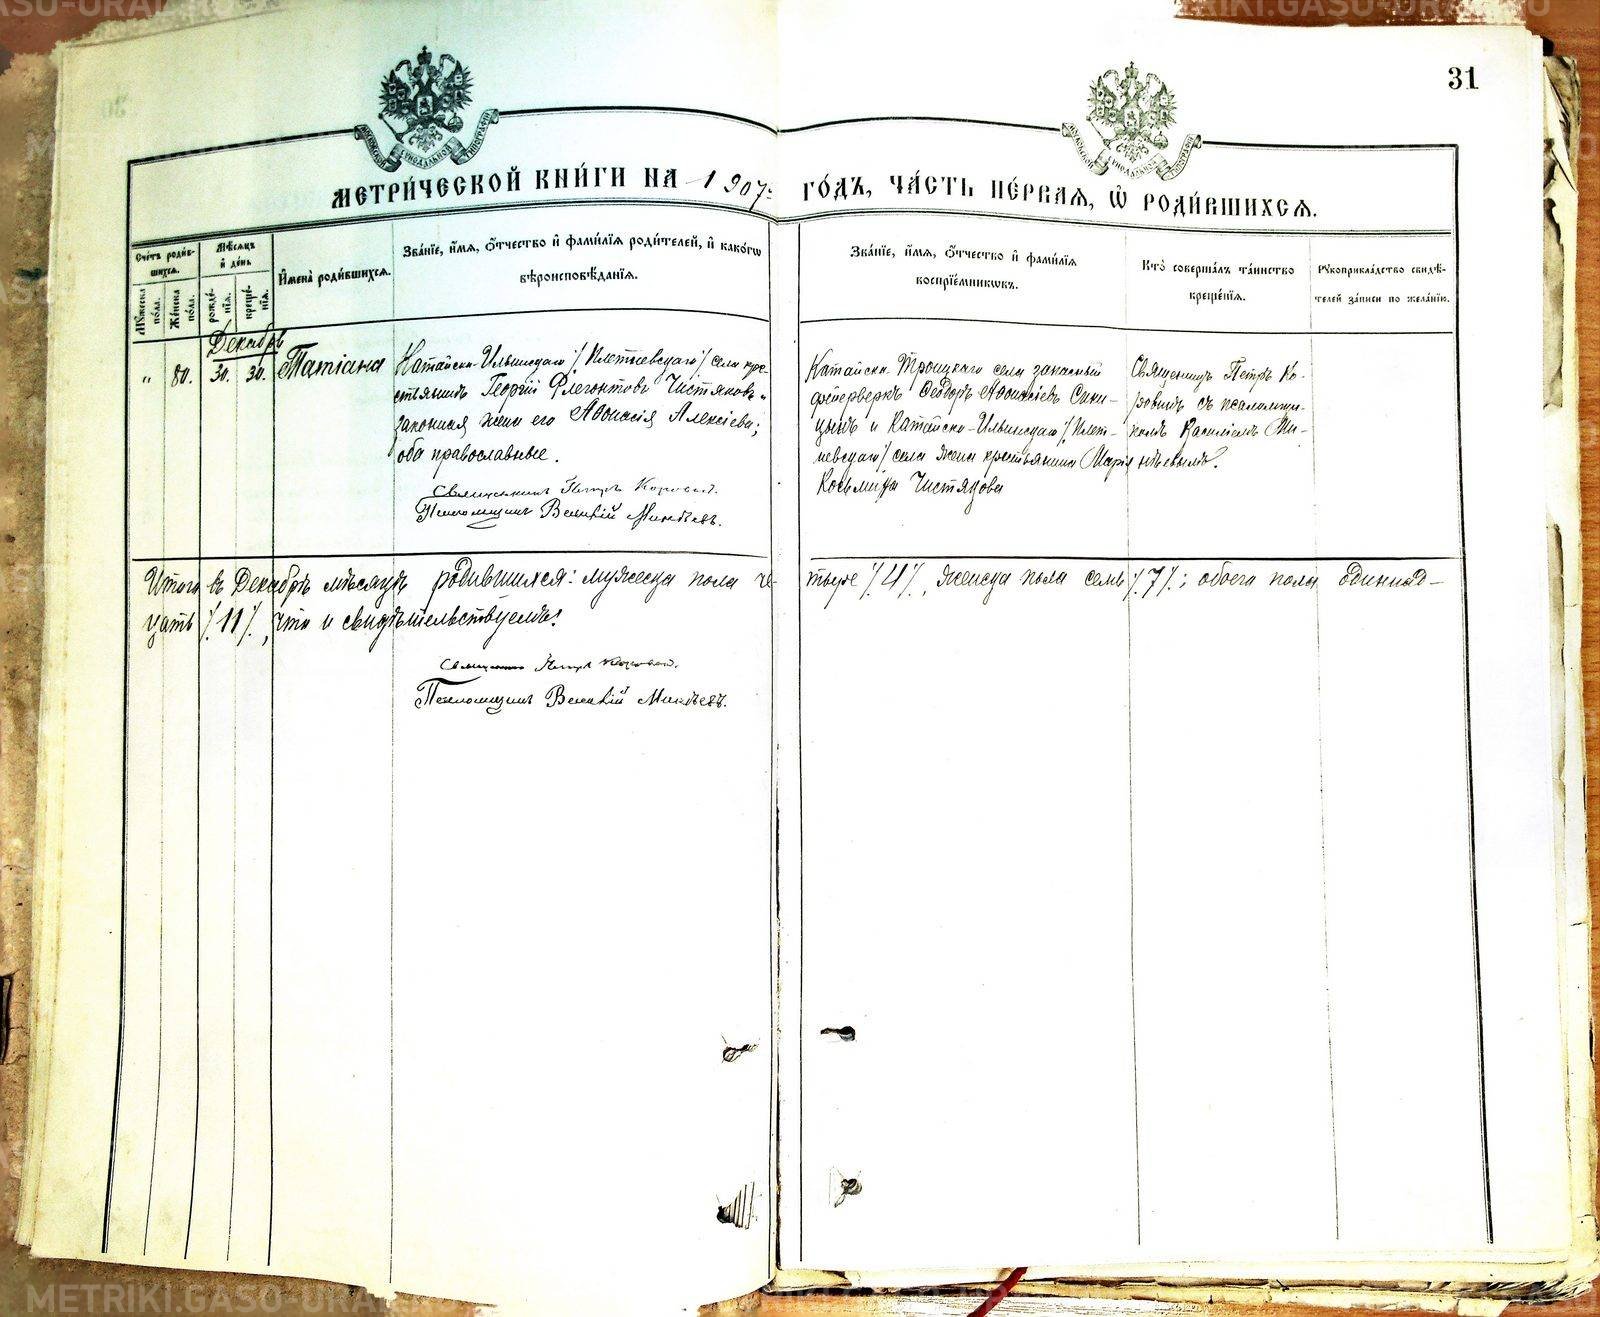 31
МЕТРИ́ЧЕСКОЙ КНИ́ГИ НА 1907 ГО́ДЪ, ЧА́СТЬ ПЕ́РВАЯ, Ѿ РОДИ́ВШИХСЯ.
Сче́тъ роди́вшихся.
Му́жеска по́ла.
Же́нска по́ла.
Мѣ́сяцъ и҆ де́нь
рожде́нїя.
креще́нїя.
И҆мена̀ роди́вшихся.
Зва́нїе, и҆́мя, ѻ҆́тчество и҆ фами́лїя роди́телей, и҆ како́гѡ
вѣроисповѣ́данїя.
Зва́нїе, и҆́мя, ѻ҆́тчество и҆ фами́лїя
воспрїе́мникѡвъ.
Кто̀ соверша́лъ та́инство
креще́нїя.
Рꙋкоприкла́дство свидѣ́-
телей за́писи по жела́нїю.
Декабрь
„ 80. 30. 30. Татіана
Катайско-Ильинскаго /Плетневскаго/ села кре-
стьянинъ Георгій Флегонтовъ Чистяковъ и
законная жена его Афонасія Алексіева;
оба православные.
Священникъ Петръ Коровинъ.
Псаломщикъ Василій Минѣевъ.
Катайско-Троицкаго села запасный
фейерверкъ Ѳеодоръ Афонасіевъ
и Катайско-Ильинскаго /Плет-
невскаго/ села жена крестьянина Марія
Козьмина Чистякова
Священникъ Петръ Ко-
ровинъ съ псаломщи-
комъ Василіемъ Ми-
нѣевымъ.
Итого въ Декабрѣ мѣсяцѣ родившихся: мужеска пола че-
тыре /4/, женска пола семь /7/; обоего пола одиннад-
цать /11/, что и свидѣтельствуемъ:
Священникъ Петръ Коровинъ.
Псаломщикъ Василій Минѣевъ.
METRIKI.GASO-URAL.RU